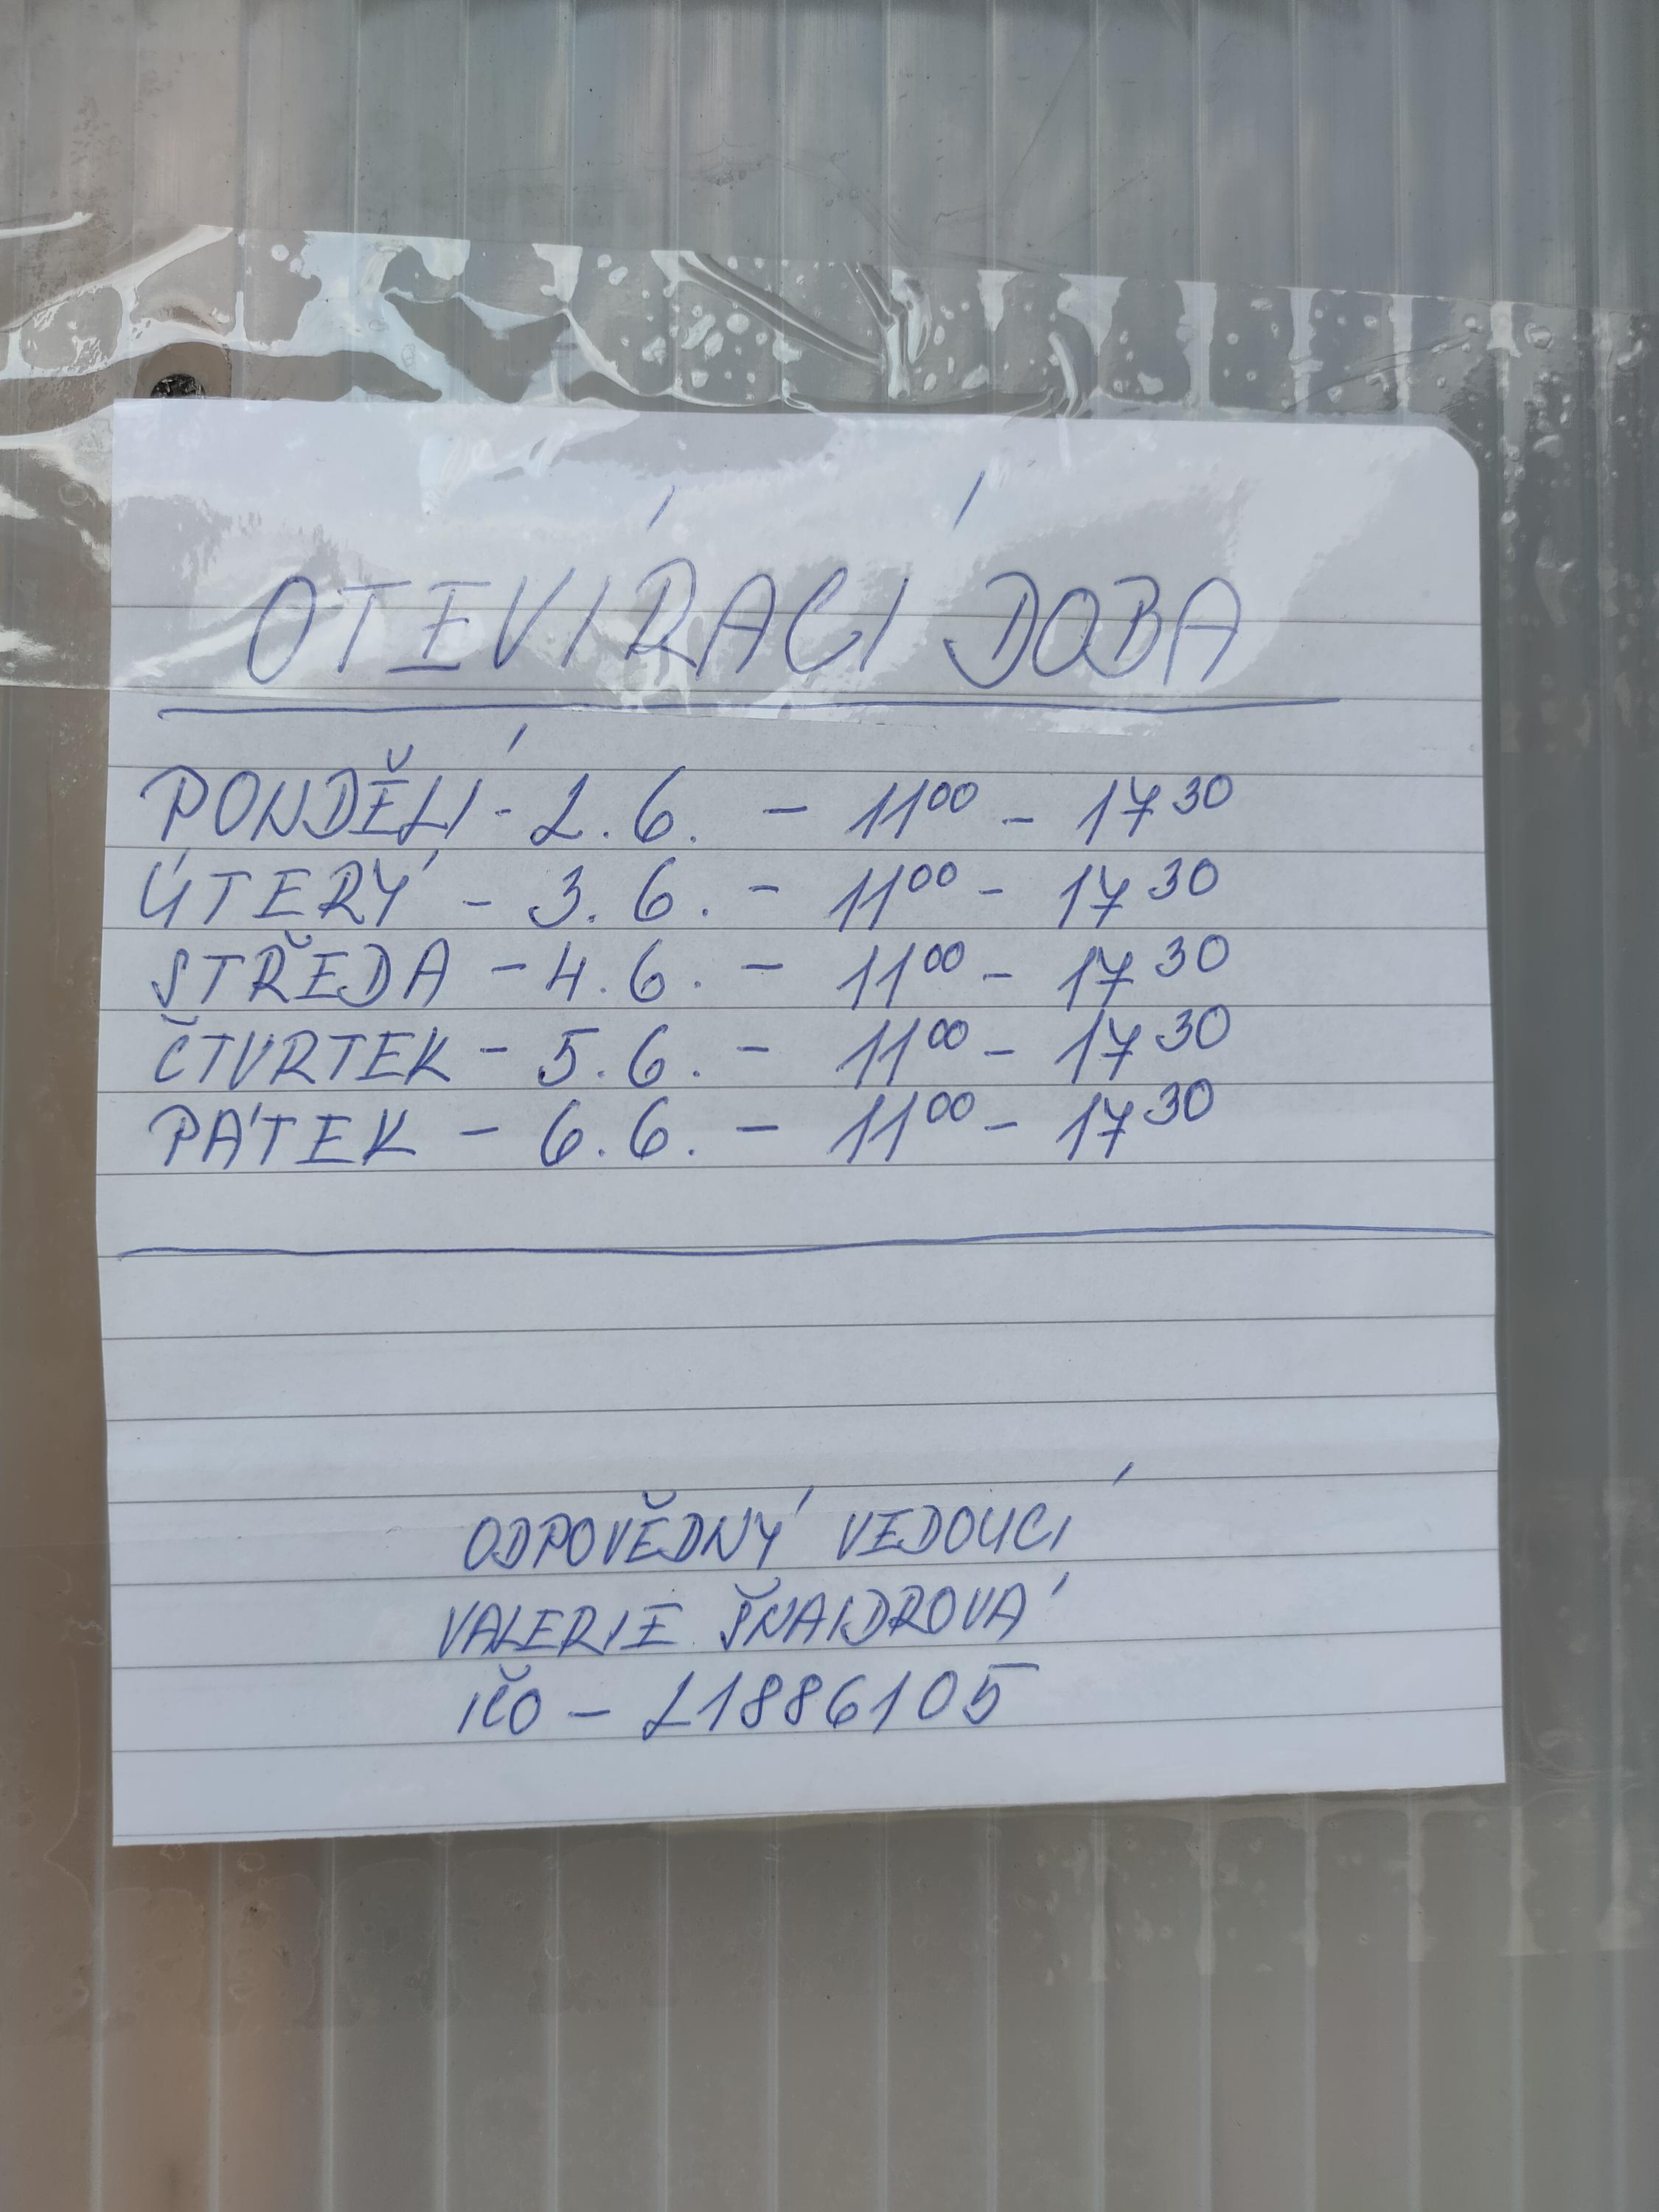 OTEVÍRACÍ DOBA
PONDĚLÍ - 2.6. - 11⁰⁰ - 17³⁰
ÚTERÝ - 3.6. - 11⁰⁰ - 17³⁰
STŘEDA - 4.6. - 11⁰⁰ - 17³⁰
ČTVRTEK - 5.6. - 11⁰⁰ - 17³⁰
PÁTEK - 6.6. - 11⁰⁰ - 17³⁰
ODPOVĚDNÝ VEDOUCÍ
VALERIE ŠNAIDROVÁ
IČO - 21886105